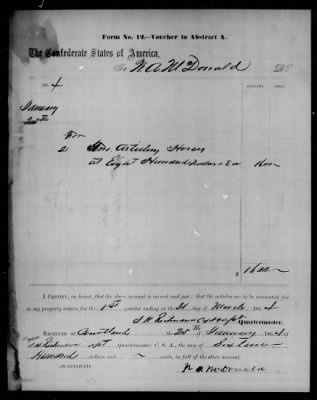 Form No. 12.—Voucher to Abstract A.
The Confederate States of America,
To N. A. McDonald Dr.
186 4
DOLLARS CENTS
January
For
2 Artillery Horses
at Eight Hundred dollars Ea 1600
$ 1600
I CERTIFY, on honor, that the above account is correct and just; that the articles are to be accounted for
in my property return for the 1st quarter ending on the 31 day of March 186 4
Quartermaster.
RECEIVED at the 20th of January 186 4 of
Quartermaster C. S. A., the sum of Sixteen
Hundred dollars and cents, in full of the above account.
(DUPLICATE) N. A. McDonald